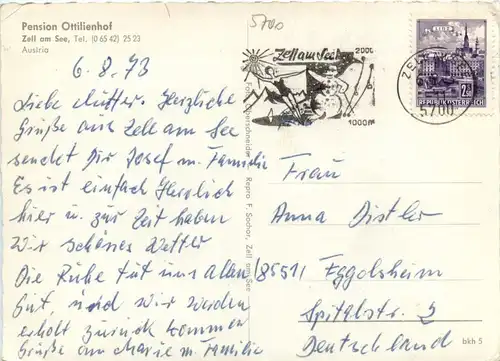 Pension Ottilienhof
Zell am See, Tel. (0 65 42) 25 23
Austria
5700
6.8.73
Liebe Mutter. Herzliche
Grüße aus Zell am See
sendet Dir Josef m. Familie
Es ist einfach Herrlich
hier u. zur Zeit haben
wir schönes Wetter
Die Ruhe tut uns Allen
Gut, und wir werden
erholt zurück kommen
Grüße an Marie m. Familie
Zell am See
2000
1000m
5700
LINZ
2.50
REPUBLIK ÖSTERREICH
Repro F. Sochor, Zell am See
Frau
Anna Distler
(8551) Eggolsheim
Spitalstr. 2
Deutschland
bkh 5